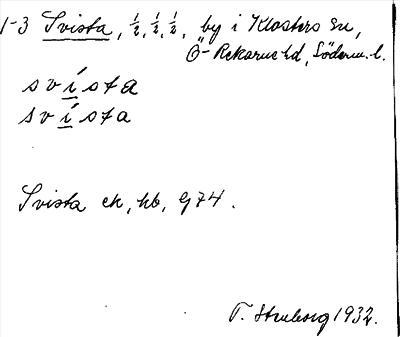 1-3 Svista, 1/2, 1/2, 1/2, by i Klosters sn,
Ö-Rekarne hd, Söderm. l.
svista
svísta
Svista ek, hb, G74.
T. Struborg 1932.